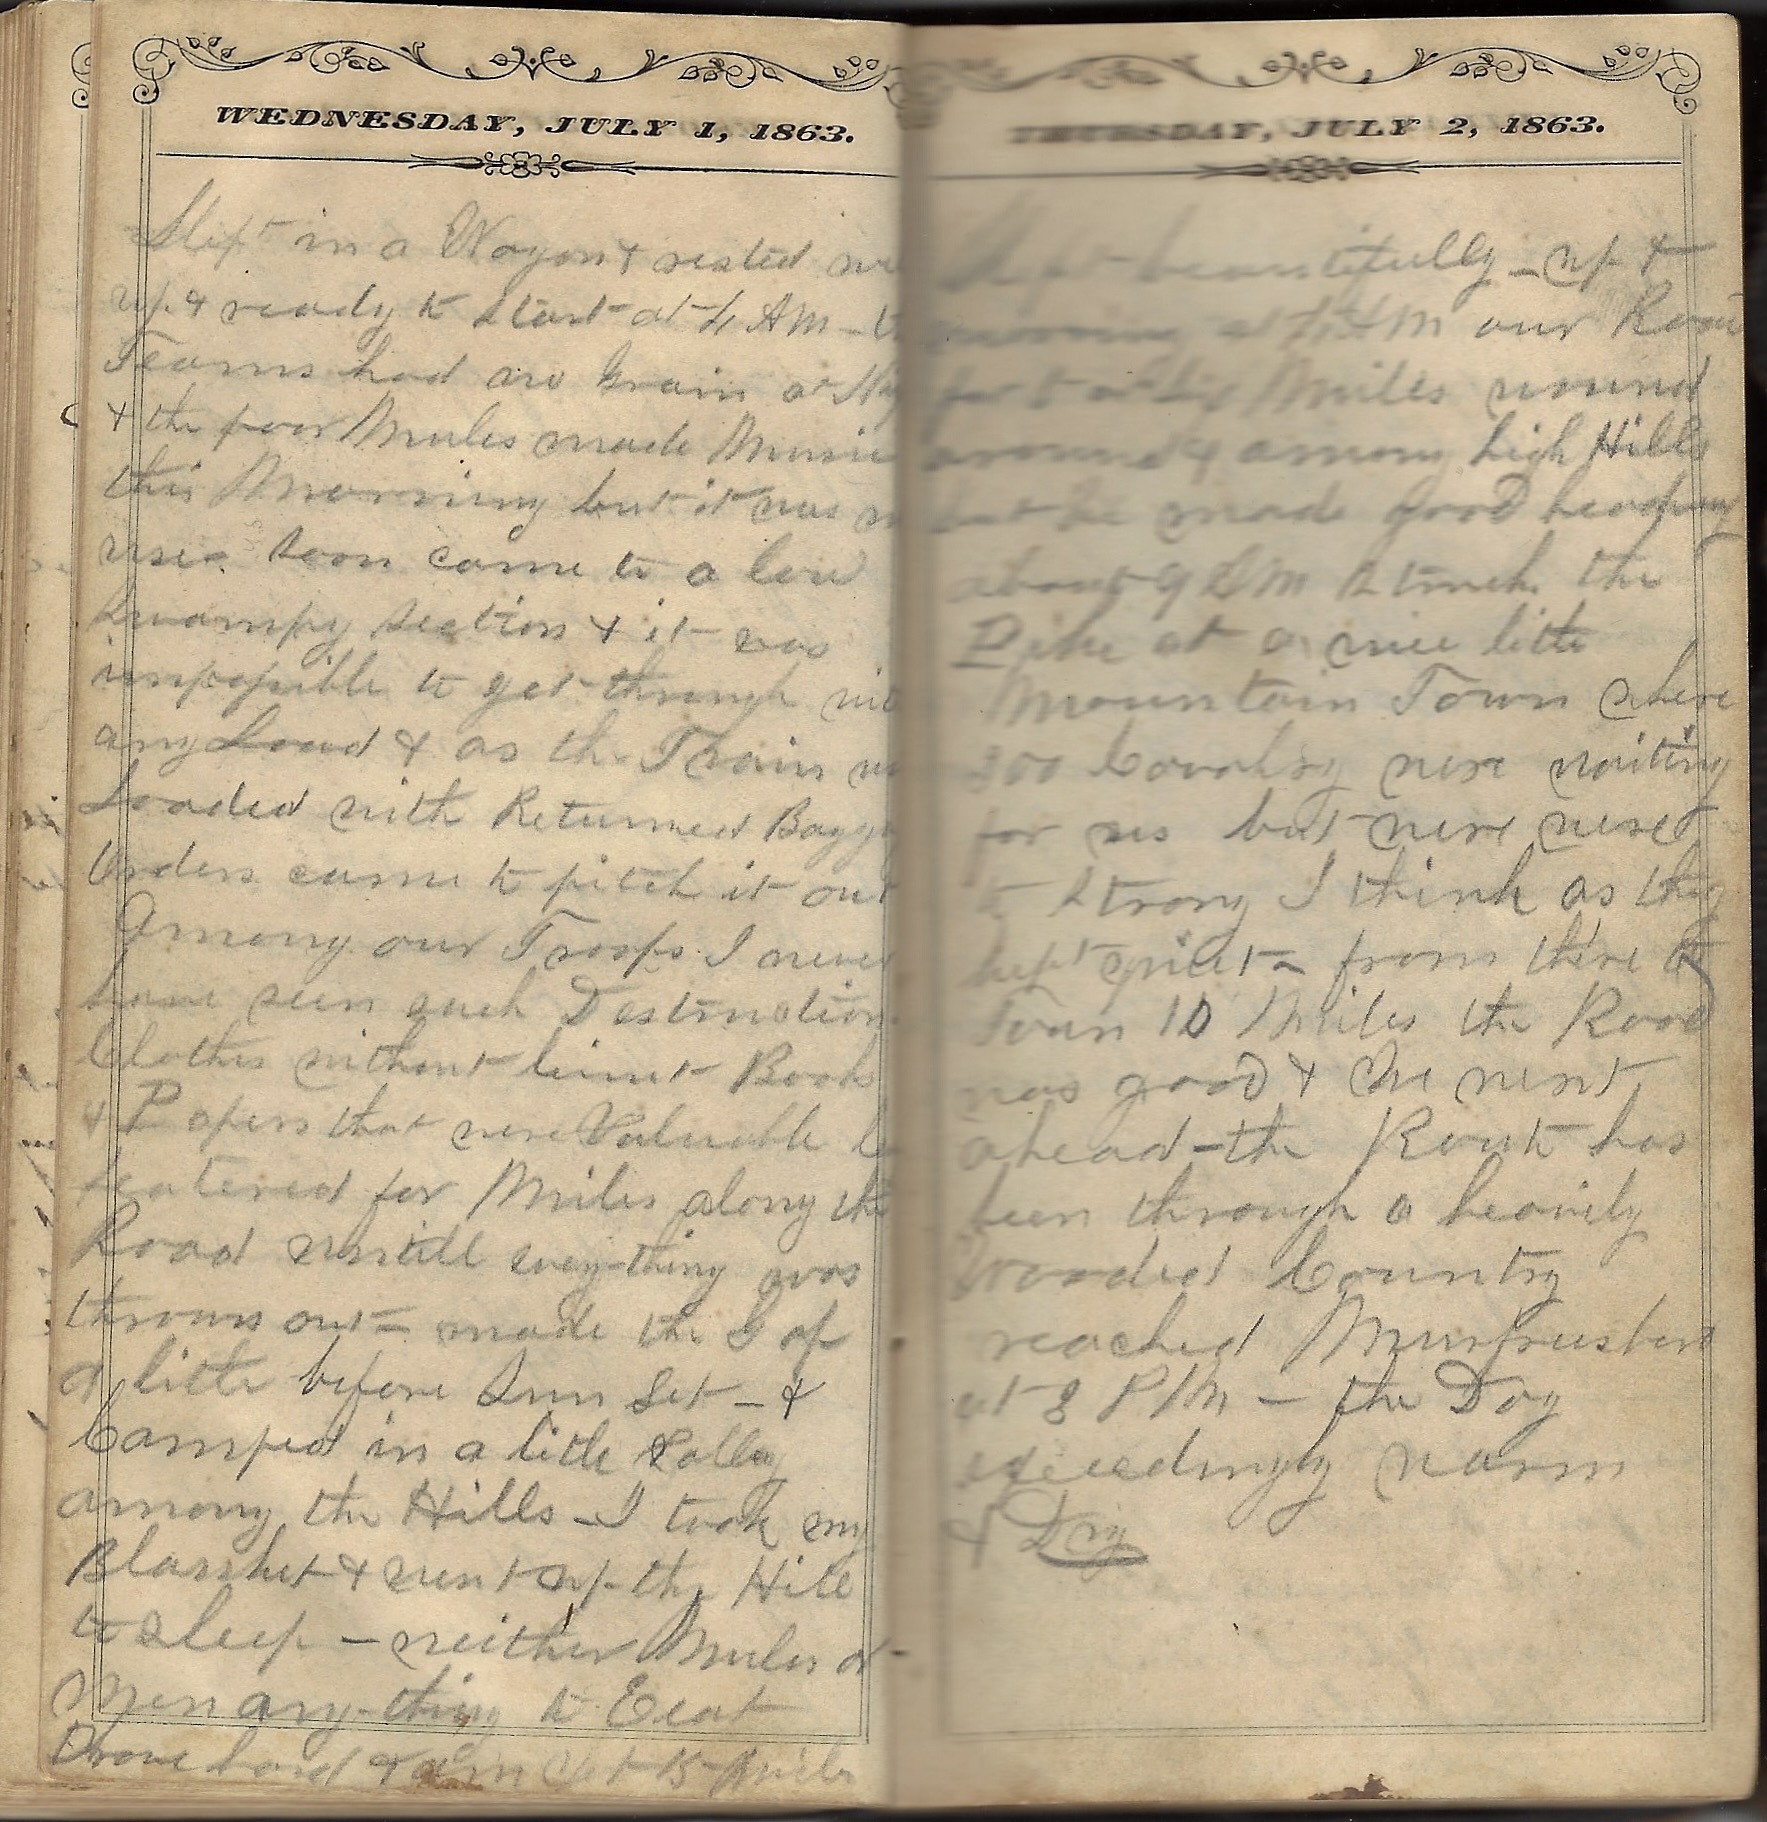 WEDNESDAY, JULY 1, 1863.
Slept in a Wagon & rested
up & ready to start at 4 AM
Teams had no Grain or
& the poor Mules made
this Morning but it was
use. Soon came to a low
swampy section & it was
impossible to get through
any Load & as the Train
Loaded with Returned
Orders came to pitch it out
Among our Troops I never
have seen such Destruction
Clothes without limit Book
& Papers that were Valuable
scatered for Miles along the
Road untill every-thing was
thrown out = made the Gap
a little before Sun Set - &
Camped in a little Valley
among the Hills - I took my
Blanket & went up the Hill
to sleep - neither Mules or
Men any-thing to Eeat
Drove hard & 15 Miles
THURSDAY, JULY 2, 1863.
Slept beautifully - up &
moving at 4 AM our
for Miles wound
around & among high Hills
but made good headway
about 9 struck the
Pike at a nice little
Mountain Town where
300 Cavalry were waiting
for us but we were
to Strong I think as they
kept quiet - from there to
Town 10 Miles the Road
was good & we went
ahead - the Route has
been through a heavily
wooded Country
reached
at 8 PM - the Day
exceedingly warm
& Dry